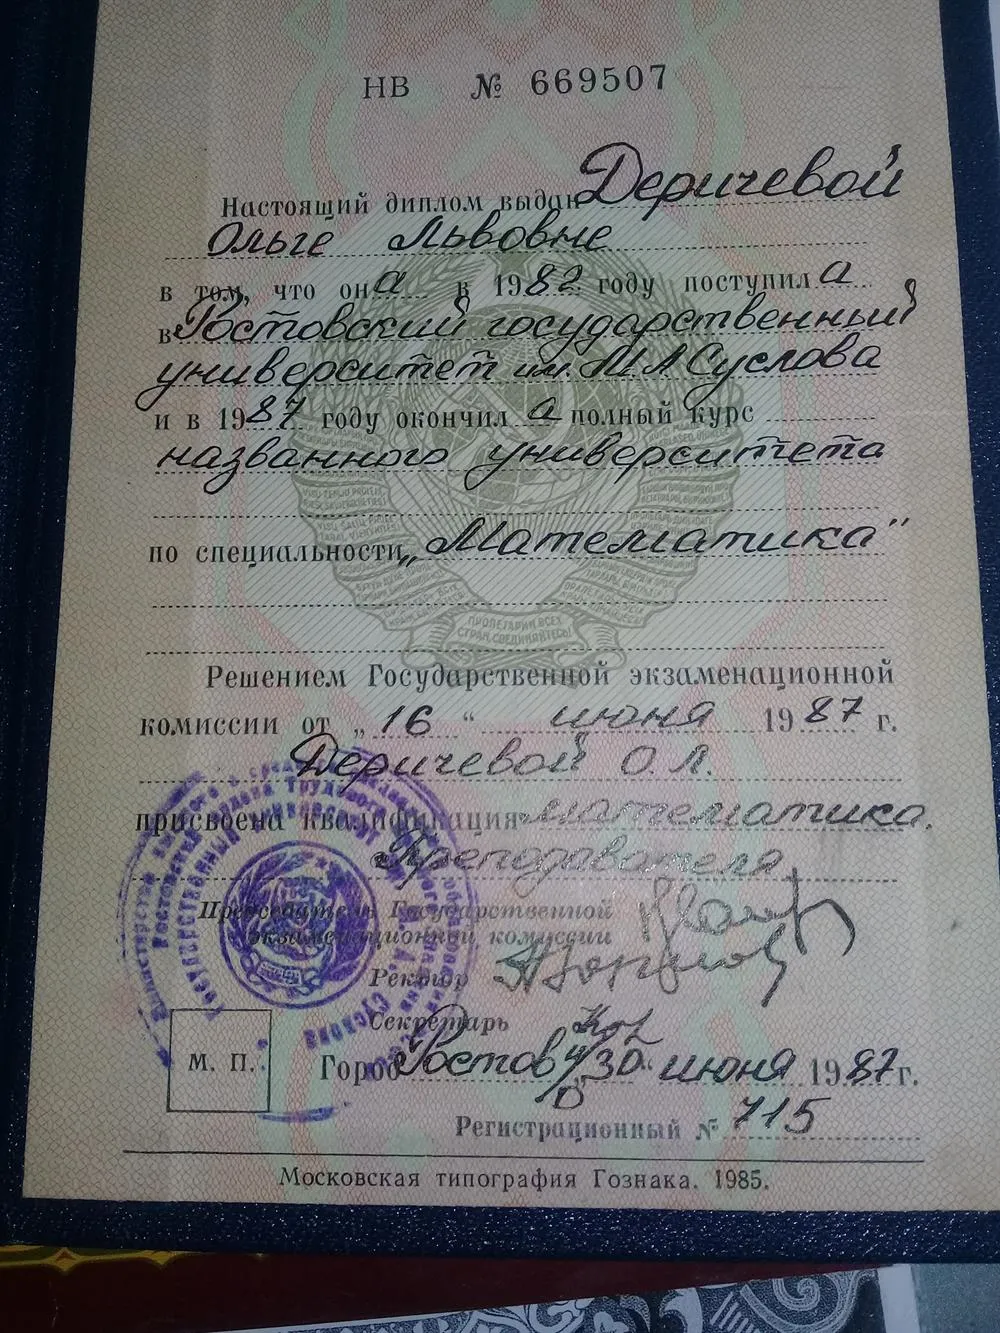 НВ № 669507
Настоящий диплом выдан Деричевой
Ольге Львовне
в том, что она в 1982 году поступила
в Ростовский государственный
университет им. М А Суслова
и в 1987 году окончила полный курс
названного университета
по специальности „Математика"
ПРОЛЕТАРИИ ВСЕХ
СТРАН, СОЕДИНЯЙТЕСЬ!
Решением Государственной экзаменационной
комиссии от „16“ июня 1987 г.
Деричевой О. Л.
присвоена квалификация математика.
Преподавателя
Председатель Государственной
экзаменационной комиссии
Ректор
Секретарь
М. П.
Город Ростов н/Д „30“ июня 1987 г.
Регистрационный № 715
Московская типография Гознака. 1985.